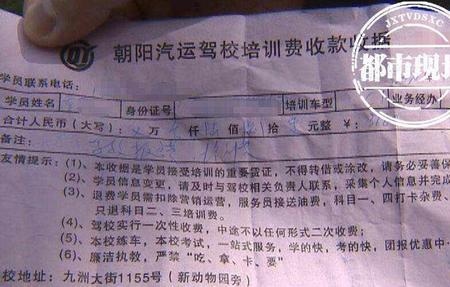 JXTVDSXC
都市现
朝阳汽运驾校培训费收款收据
学员联系电话：
学员姓 身份证号 培训车型 业务经办
合计人民币（大写）： 万 仟 佰 拾 元整 ￥：
备注：
友情提示：（1）、本收据是学员接受培训的重要凭证，不得转借或涂改，请务必妥善保
（2）、学员信息变更，请及时与驾校相关负责人联系，采集个人信息并完成
（3）、退费学员需扣除营销运营，服务员接送油费，科目一、四打卡杂费、
只退科目二、三培训费。
（4）、驾校实行一次性收费，中途不以任何形式二次收费；
（5）、本校练车，本校考试，一站式服务，学的快，考的快，团报优惠中
（6）、廉洁执教，严禁“吃、拿、卡、要”
校地址：九洲大街1155号（新动物园旁）